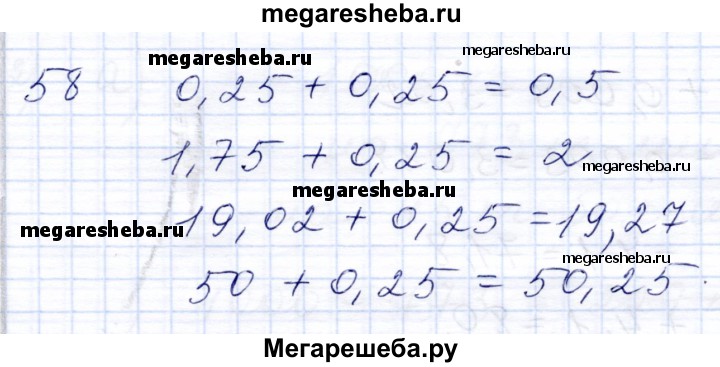 megaresheba.ru
megaresheba.ru
megaresheba.ru
58 0,25 + 0,25 = 0,5
1,75 + 0,25 = 2
megaresheba.ru
megaresheba.ru
19,02 + 0,25 = 19,27
megaresheba.ru
megaresheba.ru
50 + 0,25 = 50,25
Мегарешеба.ру